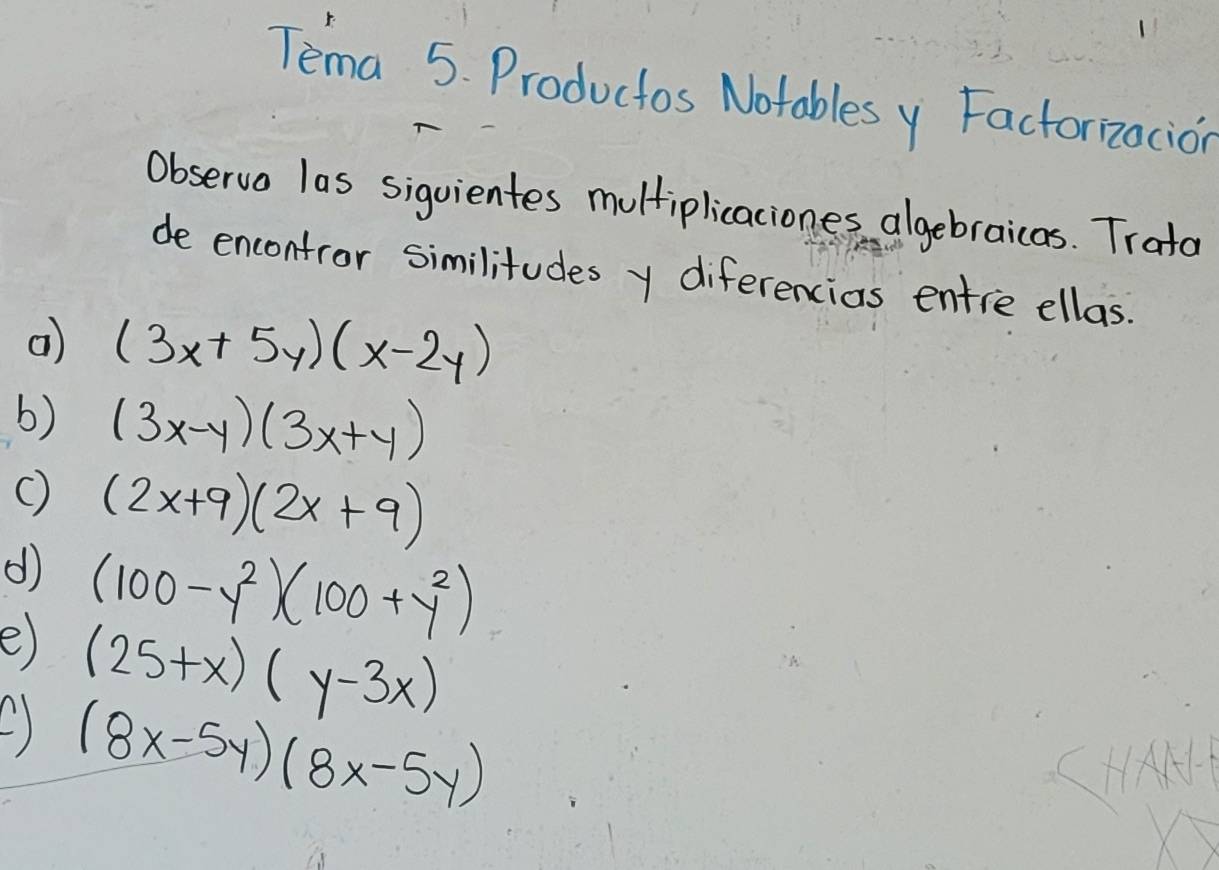 Tema 5. Productos Notables y Factorización
Observa las siguientes multiplicaciones algebraicas. Trata
de encontrar similitudes y diferencias entre ellas.
a) (3x+5y)(x-2y)
b) (3x-y)(3x+y)
c) (2x+9)(2x+9)
d) (100-y²)(100+y²)
e) (25+x)(y-3x)
f) (8x-5y)(8x-5y)